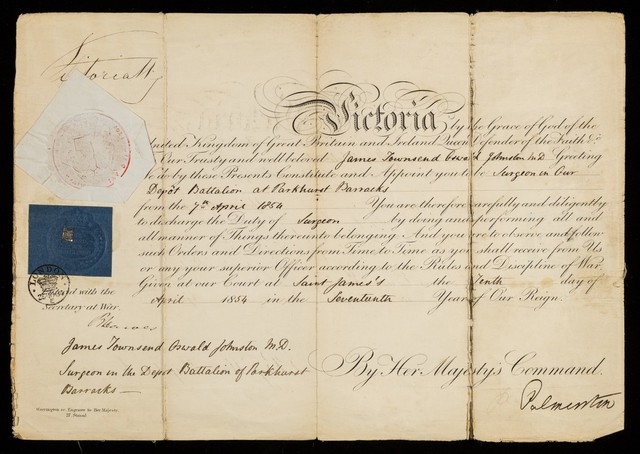 Victoria R
Victoria by the Grace of God of the
United Kingdom of Great Britain and Ireland Queen Defender of the Faith &c
To Our Trusty and well beloved James Townsend Oswald Johnston M.D. Greeting
We do by these Presents Constitute and Appoint you to be Surgeon in Our
Depôt Battalion at Parkhurst Barracks
from the 7th April 1854 You are therefore carefully and diligently
to discharge the Duty of Surgeon by doing and performing all and
all manner of Things thereunto belonging. And you are to observe and follow
such Orders and Directions from Time to Time as you shall receive from Us
or any your superior Officer according to the Rules and Discipline of War.
Given at our Court at Saint James's the Tenth day of
April 1854 in the Seventeenth Year of Our Reign.
LONDON
Entered with the
Secretary at War.
By Her Majesty's Command.
Palmerston
James Townsend Oswald Johnston M.D.
Surgeon in the Depot Battalion of Parkhurst
Barracks
Warrington sc. Engraver to Her Majesty.
27, Strand